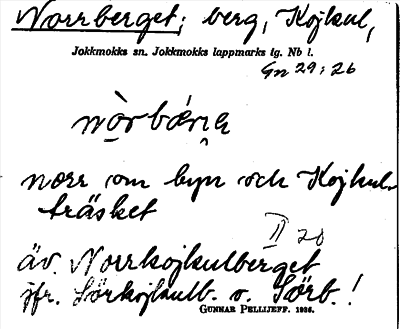 Norrberget; berg, Kojkul,
Jokkmokks sn. Jokkmokks lappmarks tg. Nb l.
Gn 29:26
norr om byn och Kojkul-
träsket
II 20
äv. Norrkojkulberget
jfr. Sörkojkulb. o. Sörb.!
GUNNAR PELLIJEFF. 1936.